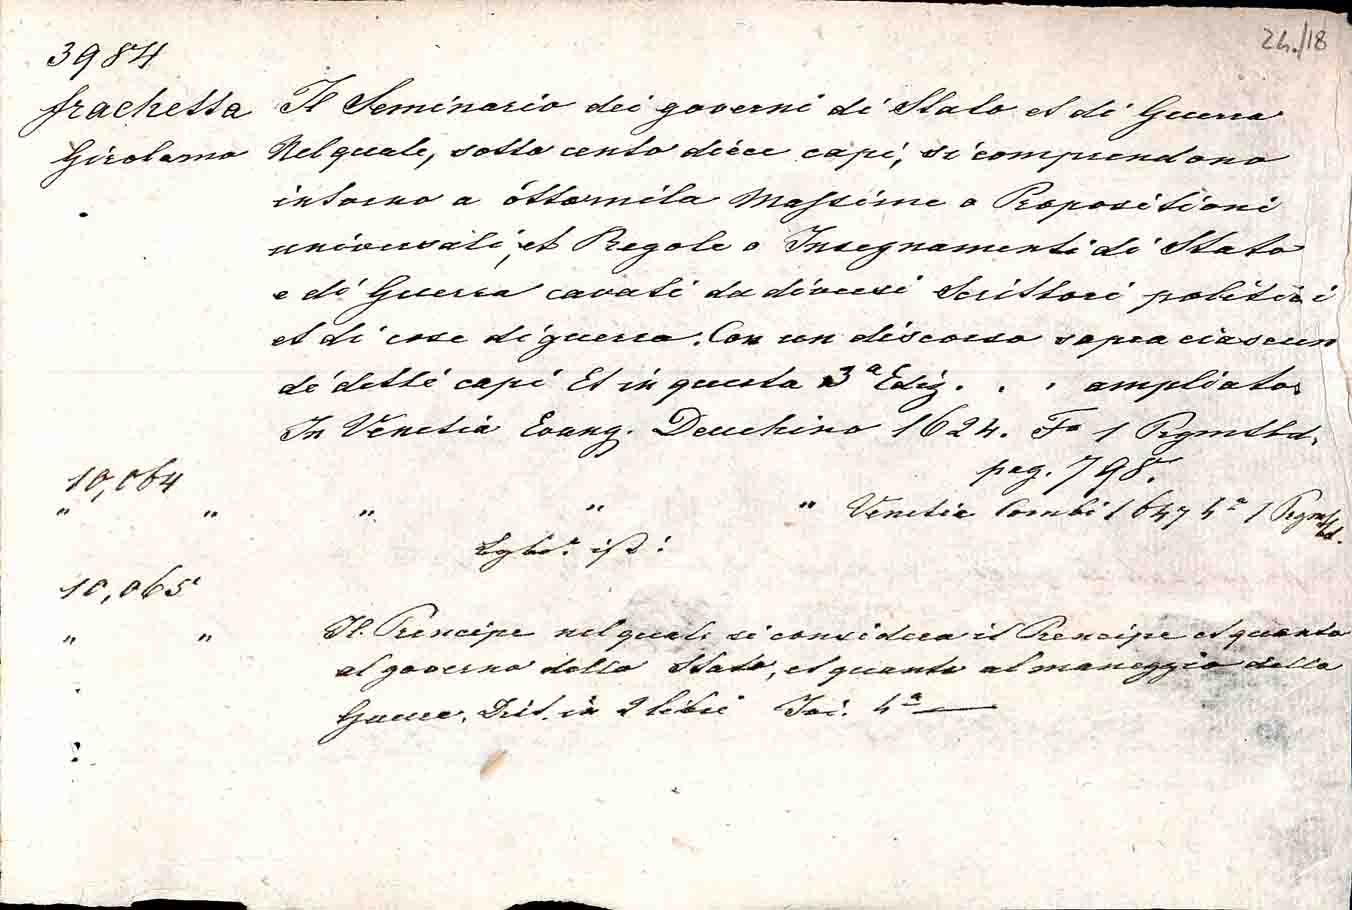 24./18
3984
Frachetta Il Seminario dei governi di Stato et di Guerra
Girolamo Nel quale, sotto cento diece capi, si comprendono
intorno a ottomila Massime o Propositioni
universali, et Regole o Insegnamenti di Stato
e di Guerra cavati da diversi Scrittori politici
et di cose di guerra. Con un discorso sopra ciascun
di detti capi Et in questa 3ª Ediz. . . ampliato
In Venetia Evang. Deuchino 1624. Fº 1 Pgmtbd.
pag. 798.
10,064
" " " " " Venetia Combi 1647 4º 1 Pgmtbd.
10,065
" " Il Prencipe nel quale si considera il Prencipe et quanto
al governo dello Stato, et quanto al maneggio della
Guerra. Dist. in 2 libri Ivi. 4º —